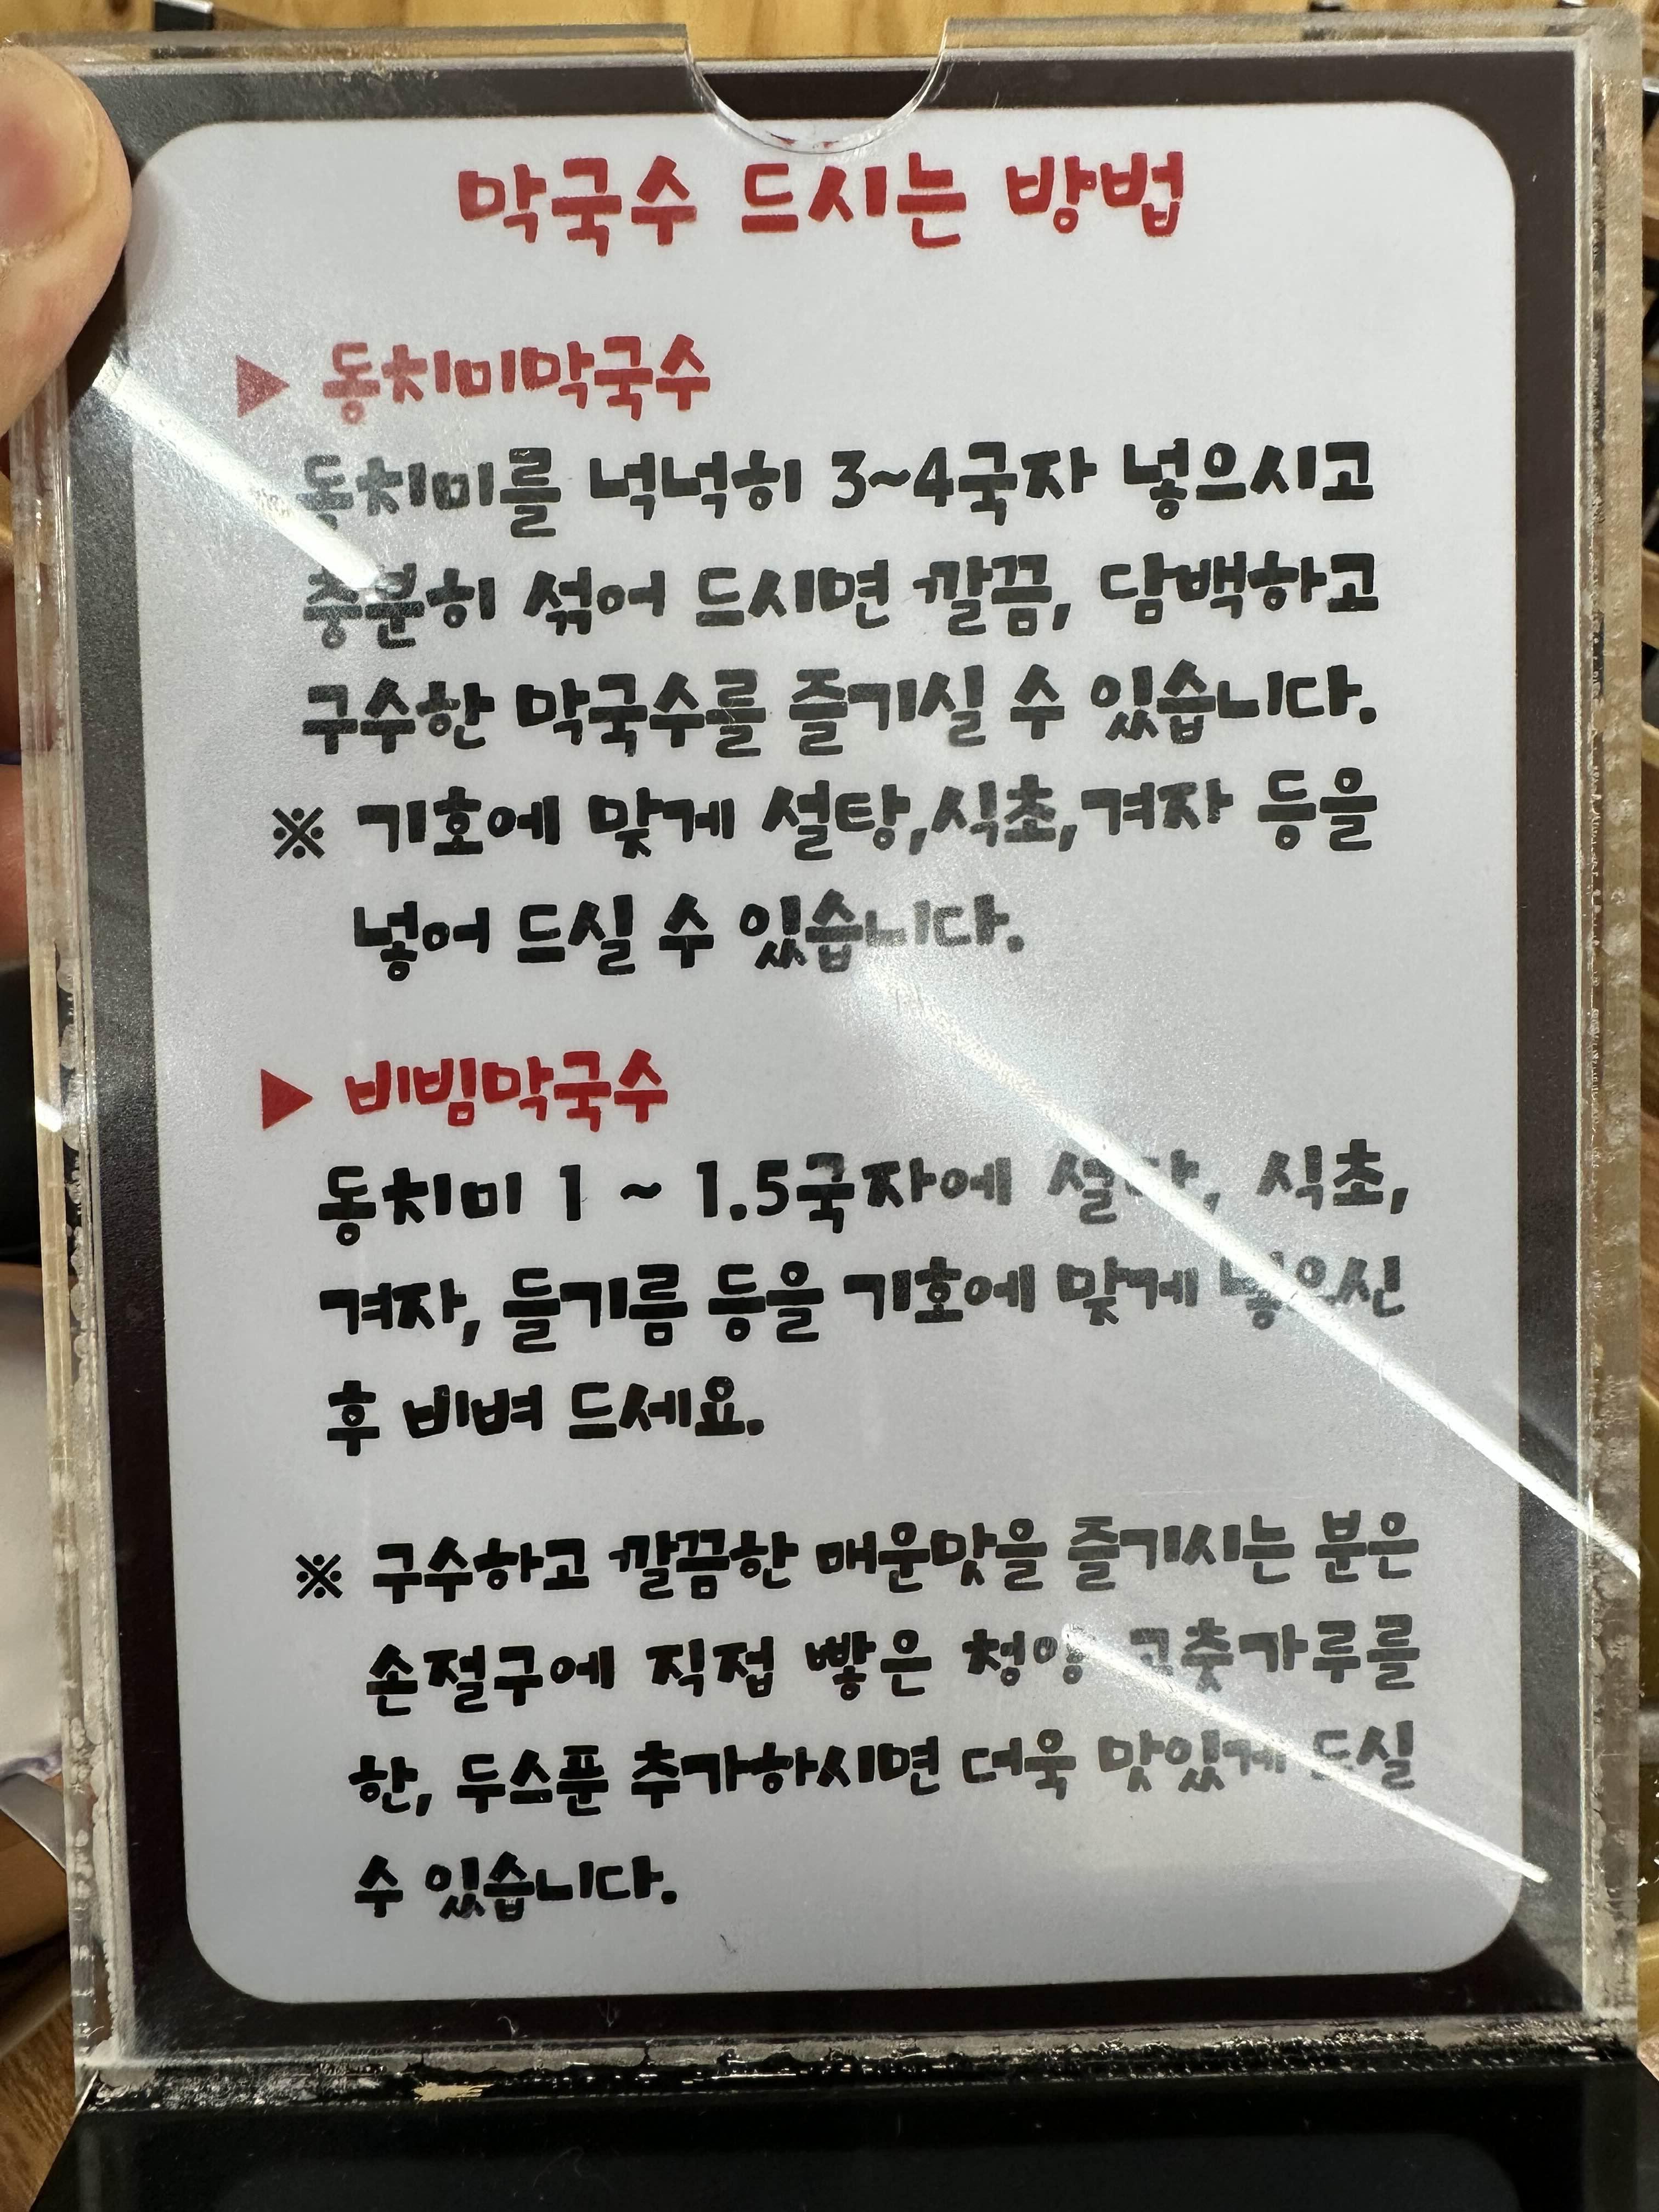 막국수 드시는 방법
▶ 동치미막국수
동치미를 넉넉히 3~4국자 넣으시고
충분히 섞어 드시면 깔끔, 담백하고
구수한 막국수를 즐기실 수 있습니다.
※ 기호에 맞게 설탕,식초,겨자 등을
넣어 드실 수 있습니다.
▶ 비빔막국수
동치미 1 ~ 1.5국자에 설탕, 식초,
겨자, 들기름 등을 기호에 맞게 넣으신
후 비벼 드세요.
※ 구수하고 깔끔한 매운맛을 즐기시는 분은
손절구에 직접 빻은 청양 고춧가루를
한, 두스푼 추가하시면 더욱 맛있게 드실
수 있습니다.